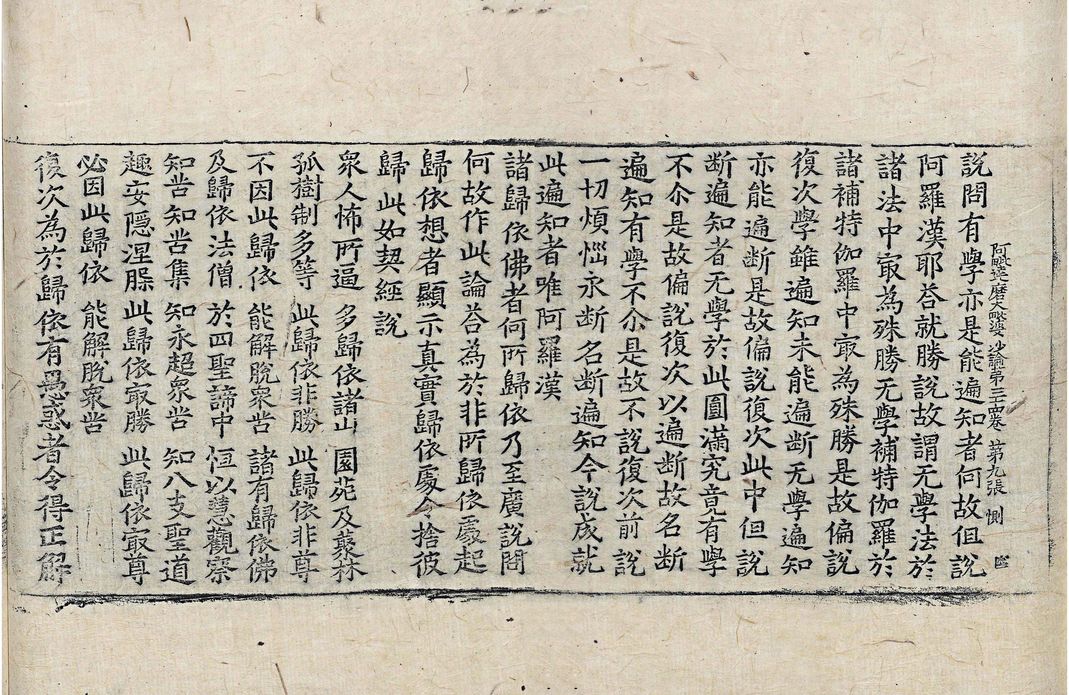 說問有學亦是能遍知者何故但說
阿毗達磨大毗婆沙論第三十四卷 第九張 惻
阿羅漢耶荅就勝說故謂无學法於
諸法中㝡為殊勝无學補特伽羅於
諸補特伽羅中㝡為殊勝是故偏說
復次學雖遍知未能遍断无學遍知
亦能遍断是故偏說復次此中但說
断遍知者无學於此圓滿究竟有學
不尒是故偏說復次以遍断故名断
遍知有學不尒是故不說復次前說
一切煩惱永断名断遍知今說成就
此遍知者唯阿羅漢
諸歸依佛者何所歸依乃至廣說問
何故作此論荅為於非所歸依處起
歸依想者顯示真實歸依處令捨彼
歸此如契經說
衆人怖所逼 多歸依諸山 園苑及叢林
孤樹制多等 此歸依非勝 此歸依非尊
不因此歸依 能解脫衆苦 諸有歸依佛
及歸依法僧 於四聖諦中 恒以慧觀察
知苦知苦集 知永超衆苦 知八支聖道
趣安隱涅槃 此歸依㝡勝 此歸依㝡尊
必因此歸依 能解脫衆苦
復次為於歸依有愚惑者令得正解